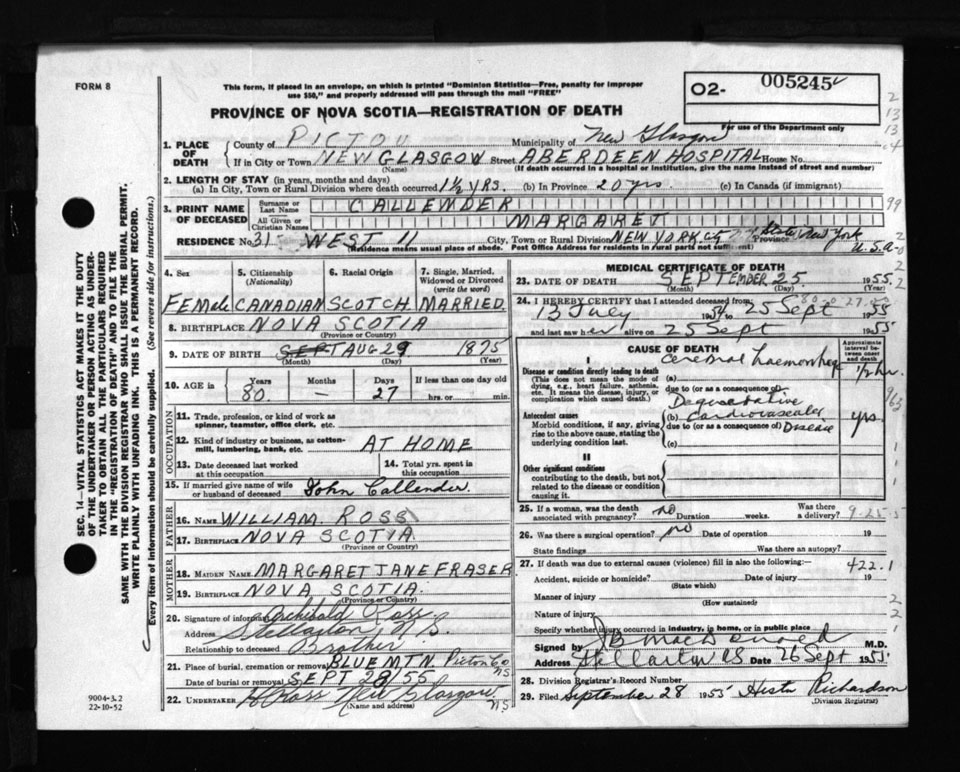 FORM 8
This form, if placed in an envelope, on which is printed "Dominion Statistics—Free, penalty for improper
use $50," and properly addressed will pass through the mail "FREE"
O2- 005245
For use of the Department only
PROVINCE OF NOVA SCOTIA—REGISTRATION OF DEATH
1. PLACE OF DEATH
County of PICTOU Municipality of New Glasgow
If in City or Town NEW GLASGOW Street ABERDEEN HOSPITAL House No.
(Name) (If death occurred in a hospital or institution, give the name instead of street and number)
2. LENGTH OF STAY (in years, months and days)
(a) In City, Town or Rural Division where death occurred 1½ YRS. (b) In Province 20 yrs. (c) In Canada (if immigrant)
3. PRINT NAME OF DECEASED
Surname or Last Name CALLENDER
All Given or Christian Names MARGARET
RESIDENCE No. 31- WEST 11 City, Town or Rural Division NEW YORK CITY Province State New York
U.S.A.
(Residence means usual place of abode. Post Office Address for residents in rural parts not sufficient)
4. Sex Female
5. Citizenship (Nationality) CANADIAN
6. Racial Origin SCOTCH
7. Single, Married, Widowed or Divorced (write the word) MARRIED
8. BIRTHPLACE NOVA SCOTIA
(Province or Country)
9. DATE OF BIRTH SEPT AUG 29 1875
(Month) (Day) (Year)
10. AGE in Years 80. Months — Days 27 If less than one day old hrs. or min.
OCCUPATION
11. Trade, profession, or kind of work as spinner, teamster, office clerk, etc.
12. Kind of industry or business, as cotton-mill, lumbering, bank, etc. AT HOME
13. Date deceased last worked at this occupation
14. Total yrs. spent in this occupation
15. If married give name of wife or husband of deceased John Callender
FATHER
16. NAME WILLIAM ROSS
17. BIRTHPLACE NOVA SCOTIA.
(Province or Country)
MOTHER
18. MAIDEN NAME MARGARET JANE FRASER
19. BIRTHPLACE NOVA SCOTIA.
(Province or Country)
20. Signature of informant Archibald Ross
Address Stellarton, N.S.
Relationship to deceased Brother
21. Place of burial, cremation or removal BLUE MTN. Pictou Co NS
Date of burial or removal SEPT 28/55
22. UNDERTAKER Ross New Glasgow. N.S.
(Name and address)
MEDICAL CERTIFICATE OF DEATH
23. DATE OF DEATH SEPTEMBER 25 1955
(Month) (Day) (Year)
24. I HEREBY CERTIFY that I attended deceased from:
13 July to 25 Sept 1955
and last saw her alive on 25 Sept 1955
CAUSE OF DEATH
Approximate interval between onset and death
I
Disease or condition directly leading to death
(This does not mean the mode of dying, e.g., heart failure, asthenia, etc. It means the disease, injury, or complication which caused death.)
(a) Cerebral haemorrhage ½ hr.
due to (or as a consequence of)
Antecedent causes
Morbid conditions, if any, giving rise to the above cause, stating the underlying condition last.
(b) Degenerative Cardiovascular Disease yrs.
due to (or as a consequence of)
(c)
II
Other significant conditions contributing to the death, but not related to the disease or condition causing it.
25. If a woman, was the death associated with pregnancy? no Duration weeks. Was there a delivery?
26. Was there a surgical operation? no Date of operation 19
State findings Was there an autopsy?
27. If death was due to external causes (violence) fill in also the following:— 422.1
Accident, suicide or homicide? Date of injury 19
(State which)
Manner of injury
(How sustained)
Nature of injury
Specify whether injury occurred in industry, in home, or in public place
Signed by J B MacDonald M.D.
Address Stellarton NS Date 26 Sept 1955
28. Division Registrar's Record Number
29. Filed September 28 1955 Hester Richardson
(Division Registrar)
SEC. 14—VITAL STATISTICS ACT MAKES IT THE DUTY
OF THE UNDERTAKER OR PERSON ACTING AS UNDER-
TAKER TO OBTAIN ALL THE PARTICULARS REQUIRED
IN THE "REGISTRATION OF DEATH" AND TO FILE THE
SAME WITH THE DIVISION REGISTRAR WHO SHALL ISSUE THE BURIAL PERMIT.
WRITE PLAINLY WITH UNFADING INK. THIS IS A PERMANENT RECORD.
Every item of information should be carefully supplied. (See reverse side for instructions.)
9004-3.2
22-10-52